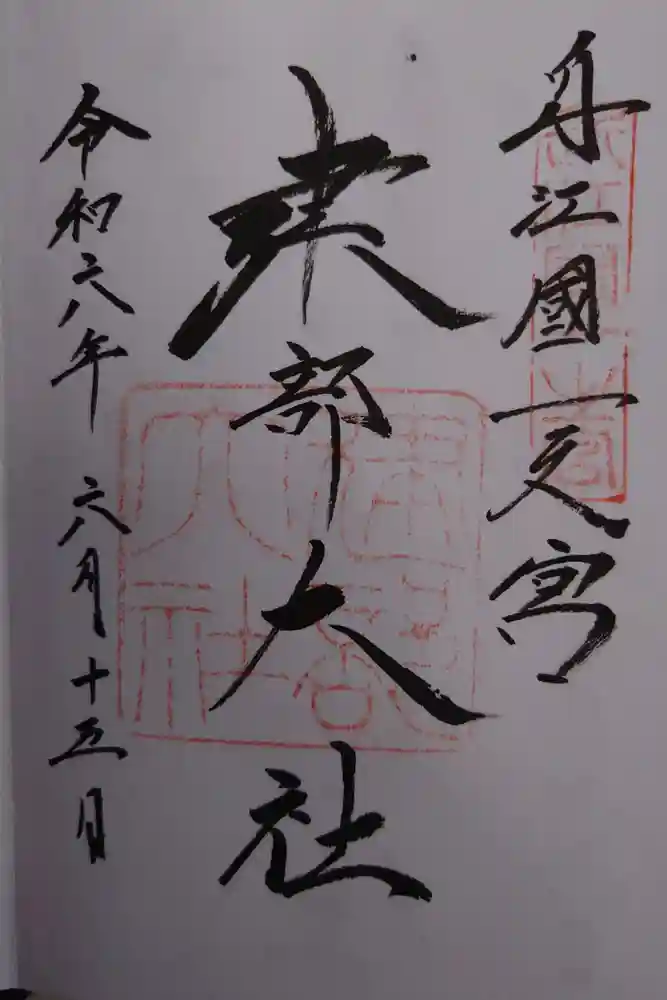 近江國一之宮
建部大社
令和六年 六月十五日
建部大社